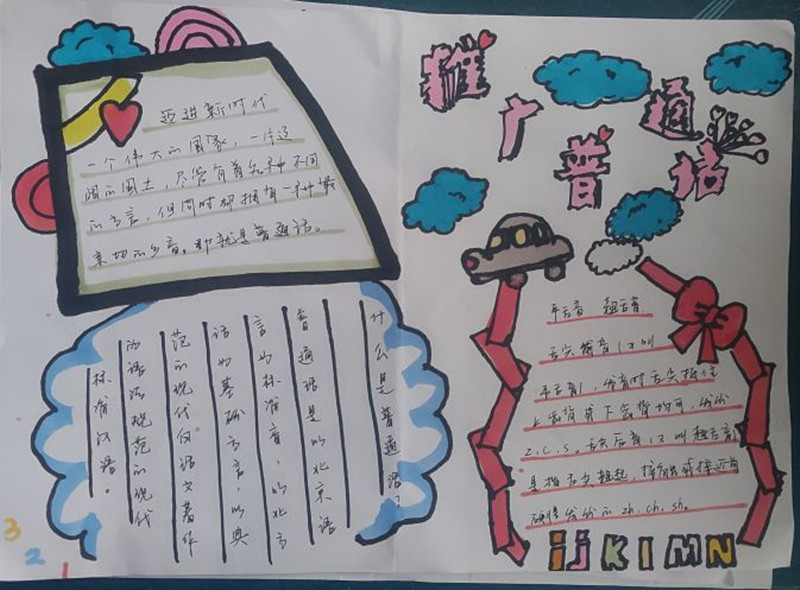 推广普通话
迈进新时代
一个伟大的国家,一片辽
阔的国土,尽管有着许多种不同
的方言,但同时却拥有一种最
亲切的乡音,那就是普通话。
什么是普通话?
普通话是以北京语
言为标准音,以北方
话为基础方言,以典
范的现代白话文著作
为语法规范的现代
标准汉语。
平舌音 翘舌音
舌尖前音(又叫
平舌音),发音时舌尖抵住
上齿背或下齿背均可,
z.c.s,舌尖后音(又叫翘舌音
是指舌尖翘起,接触或接近前
硬腭发出的zh.ch.sh。
ijKlMN
3
2
1